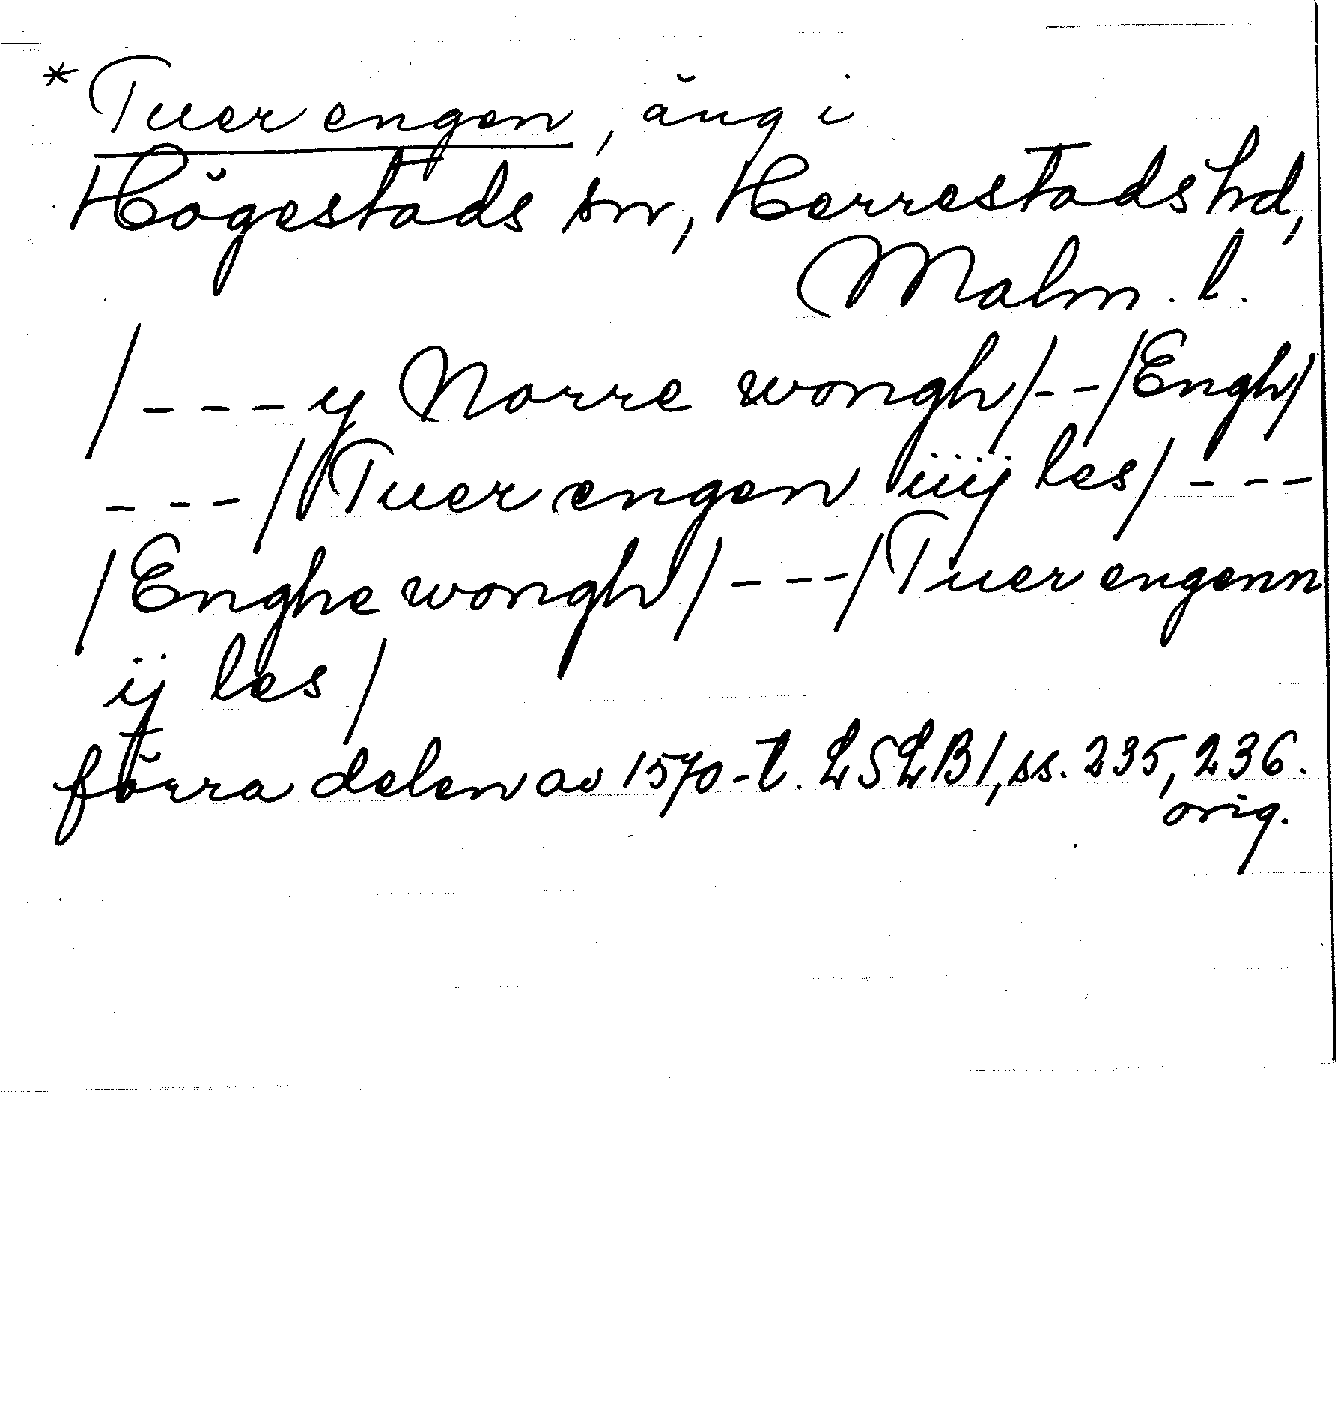 * Tuer engen, äng i
Högestads sn, Herrestads hd,
Malm. l.
/---y Norre wongh/--/Engh/
---/Tuer engen iiij les/---
/Enghe wongh/---/Tuer engenn
ij les/
förra delen av 1570-t. LSLB1, ss. 235, 236.
orig.